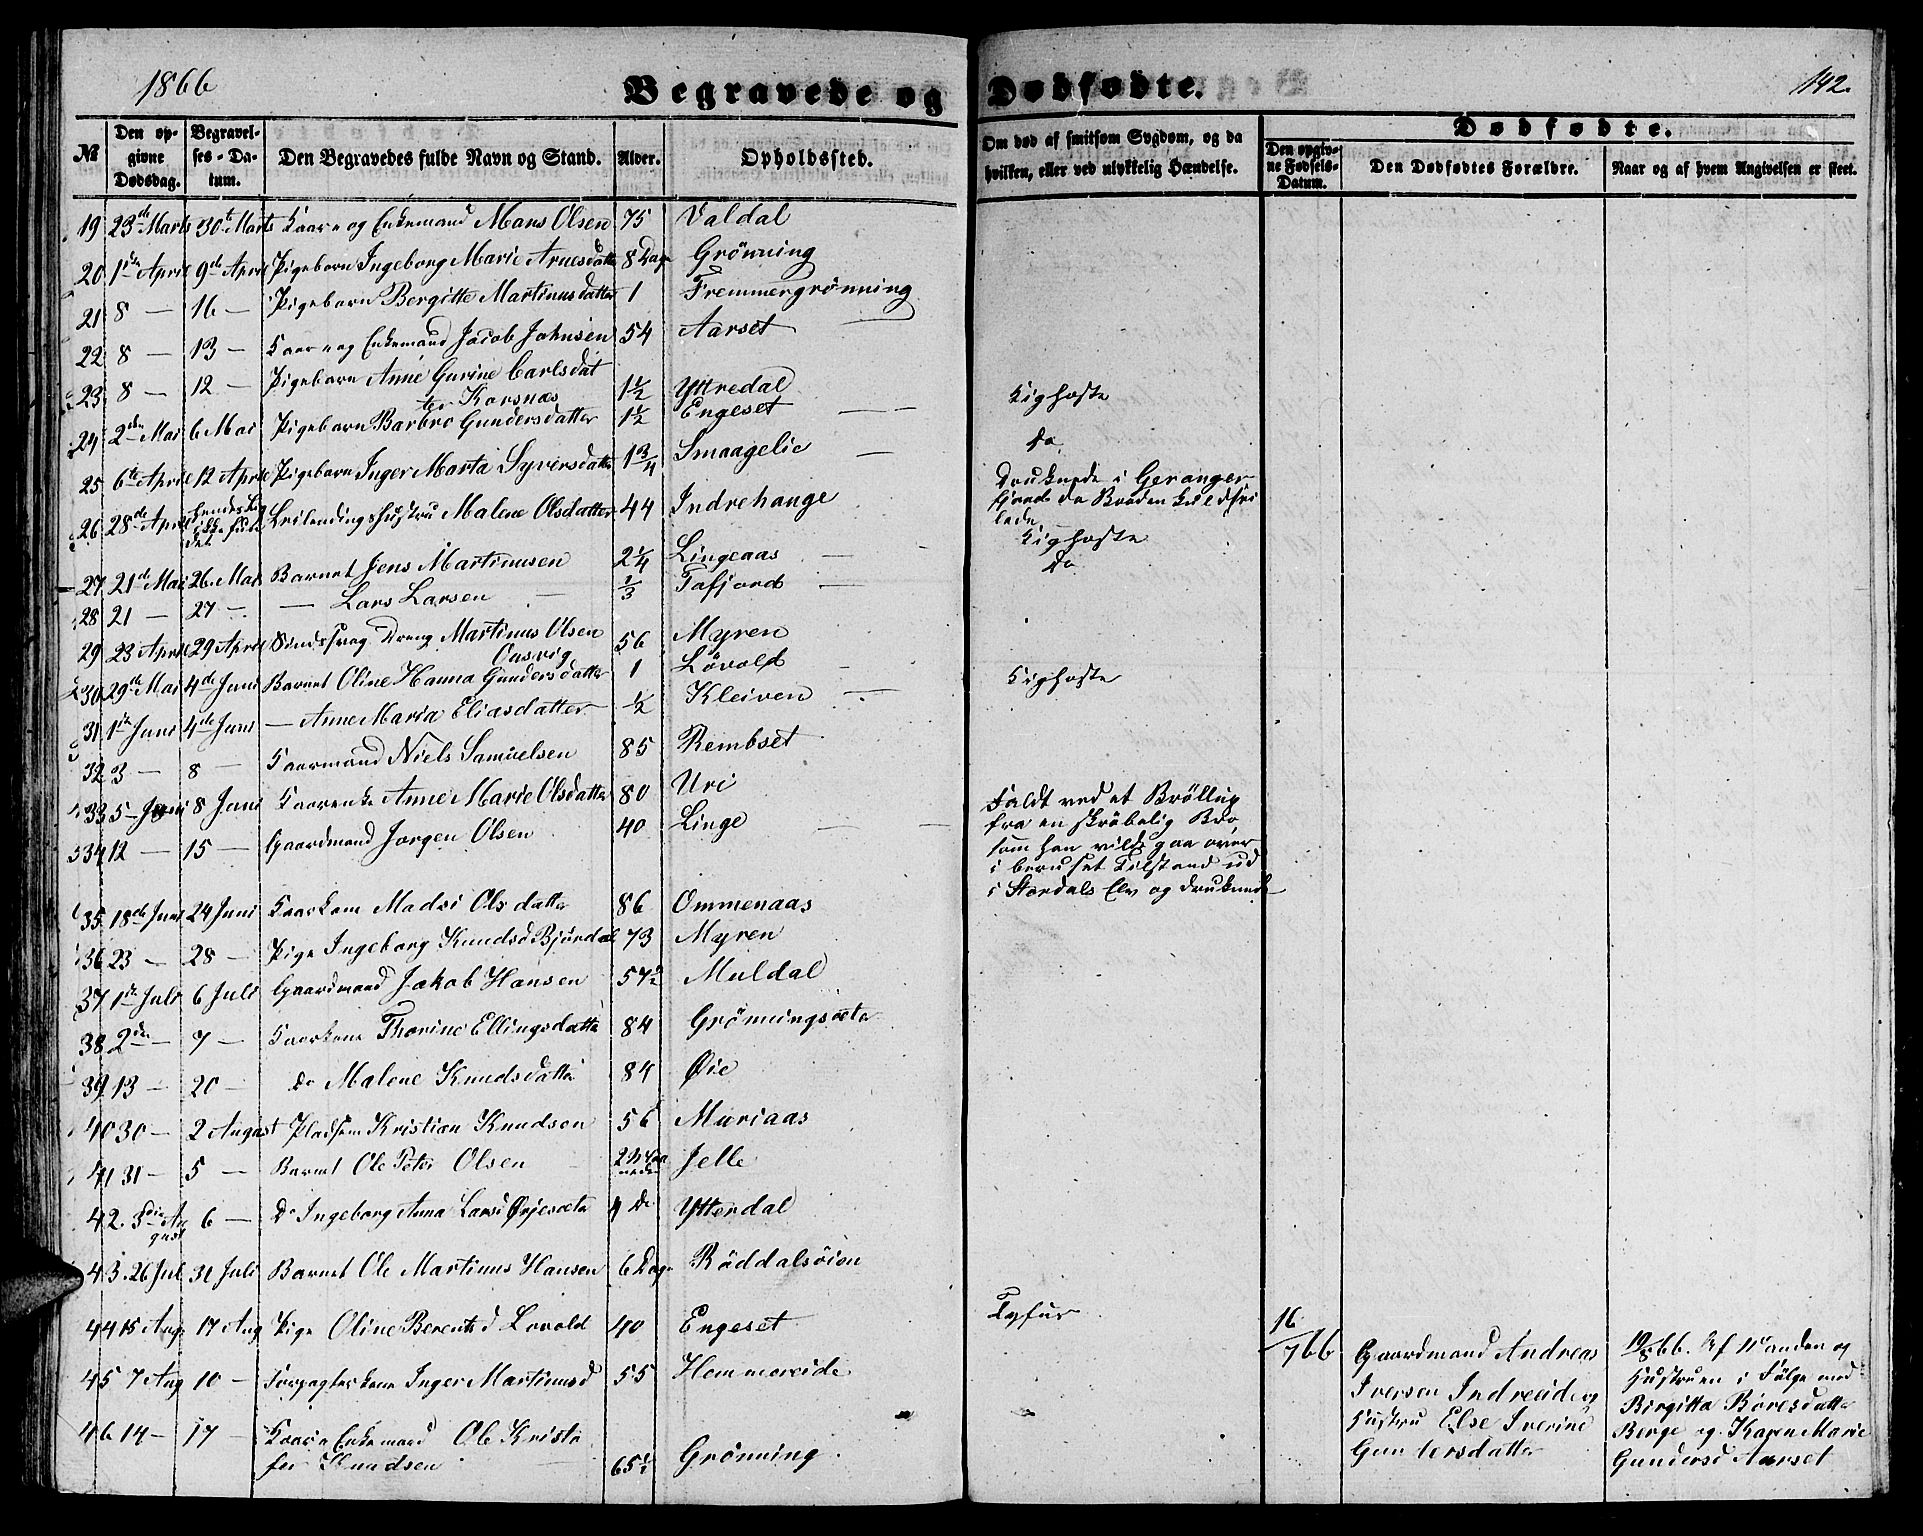 1866
Begravede og Dødfødte.
142.
№
Den opgivne Dødsdag.
Begravelses-Datum.
Den Begravedes fulde Navn og Stand.
Alder.
Opholdssted.
Om død af smitsom Sygdom, og da hvilken, eller ved ulykkelig Hændelse.
Dødfødte.
Den opgivne Fødsels-Datum.
Den Dødfødtes Forældre.
Naar og af hvem Angivelsen er skeet.
19 23de Marts 30te Marts Kaar- og Enkemand Mons Olsen 75 Valdal
20 1ste April 9de April Pigebarn Ingeborg Marie Arnesdatter 8 Dage Grönning
21 8 — 16 — Pigebarn Bergitte Martinusdatter 1 Fremmergrönning
22 8 — 13 — Kaar- og Enkemand Jacob Johnsen 54 Aarset
23 8 — 12 — Pigebarn Anne Gurine Carlsdat
ter Korsnæs 1½ Yttredal Kighoste
24 2den Mai 6 Mai Pigebarn Barbro Gundersdatter 1½ Engeset do
25 6te April 12 April Pigebarn Inger Marta Syversdatter 1¾ Smaagelie
26 28de April Leilendingshustru Malene Olsdatter 44 Indrehauge Druknede i Geranger
fjord da Baaden kuldsei
lede
27 21de Mai 26 Mai Barnet Jens Martinusen 2¼ Lingeaas Kighoste
28 21 — 27 — — Lars Larsen ⅓ Tafjord do
29 23 April 29 April Sindssvag Dreng Martinus Olsen
Oasvig 56 Myren
30 29de Mai 4de Juni Barnet Oline Hanna Gundersdatter 1 Lövold Kighoste
31 1ste Juni 4de Juni — Anne Maria Eliasdatter ½ Kleiven
32 3 — 8 — Kaarmand Niels Samuelsen 85 Rembset
33 5 Juni 8 Juni Kaarenke Anne Marie Olsdatter 80 Uri
34 12 — 15 — Gaardmand Jorgen Olsen 40 Linge
Faldt ved et Bröllup
fra en skröbelig Bro
som han vilde gaa over
i beruset Tilstand ud
i Stordals Elv og druknede
35 18de Juni 24 Juni Kaarkone Madsi Olsdatter 86 Ommenaas
36 23 — 28 — Pige Ingeborg Knudsd Björdal 73 Myren
37 1ste Juli 6 Juli Gaardmand Jakob Hansen 57½ Muldal
38 2den — 7 — Kaarkone Thorine Ellingsdatter 84 Grönningsæter
39 13 — 20 — do Malene Knudsdatter 84 Øie
40 30 — 2 August Pladsem Kristian Knudsen 56 Muriaas
41 31 — 5 — Barnet Ole Peter Olsen Jelle
42 3die August 6 — do Ingeborg Anna Larsd Ørjesæter 4 do Ytterdal
43 26 Jul 31 Juli Barnet Ole Martinus Hansen 6 Dage Röddalsöien
44 15 Aug 17 Aug Pige Oline Berentsd Lovold 40 Engeset Tyfus
45 7 Aug 10 — Forpagterkone Inger Martinusd 55 Hemmoreide
46 14 — 17 — Kaar- Enkemand Ole Kristo
fer Knudsen 65½ Grönning
16/7 66
Gaardmand Andreas
Iversen Indreeide og
Hustru Else Iverine
Gundersdatter
19/8 66. Af Manden og
Hustruen i Fölge med
Birgitta Böresdatter
Berge og Karen Marie
Gundersd Aarset